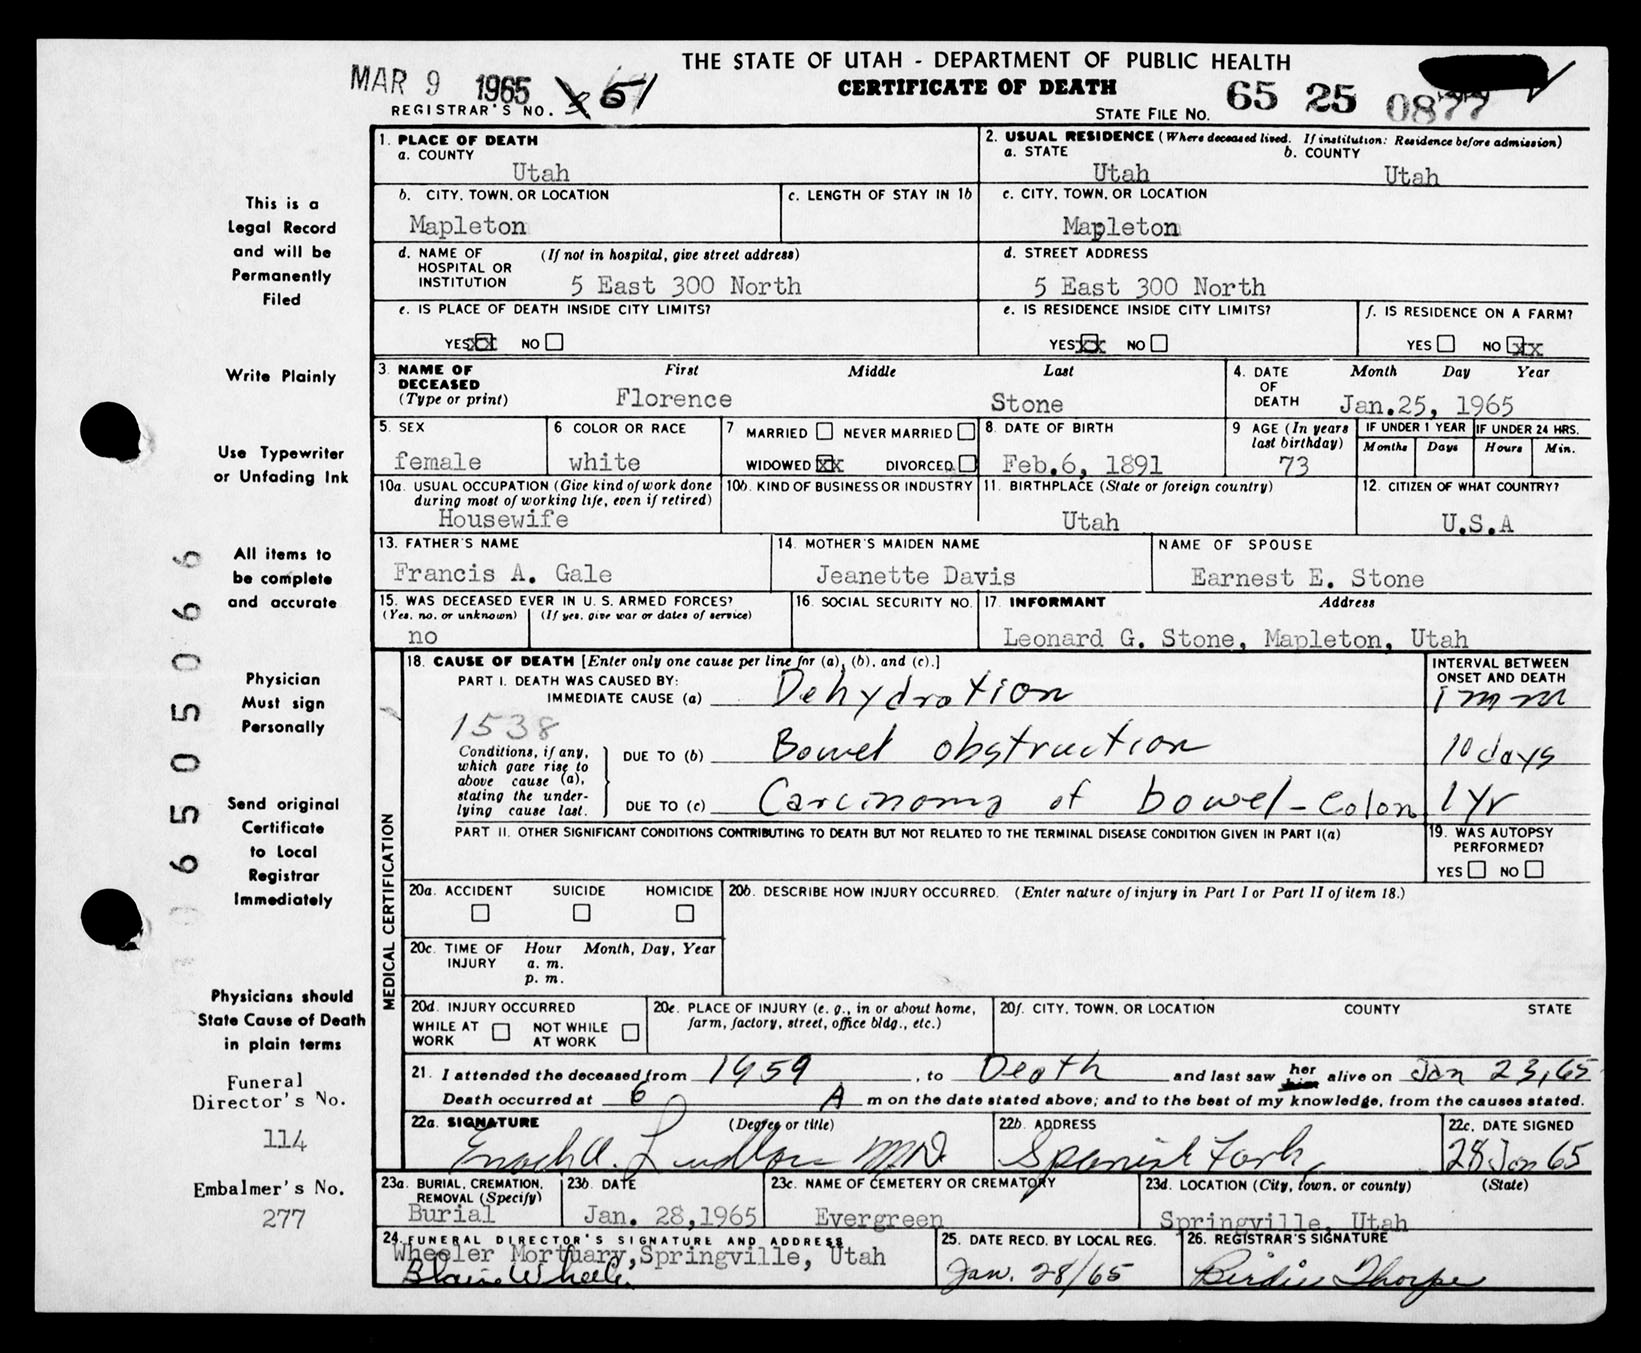 THE STATE OF UTAH - DEPARTMENT OF PUBLIC HEALTH
CERTIFICATE OF DEATH
MAR 9 1965
REGISTRAR'S NO. 51
STATE FILE NO. 65 25 0877
This is a
Legal Record
and will be
Permanently
Filed
Write Plainly
Use Typewriter
or Unfading Ink
All items to
be complete
and accurate
Physician
Must sign
Personally
Send original
Certificate
to Local
Registrar
Immediately
Physicians should
State Cause of Death
in plain terms
Funeral
Director's No.
114
Embalmer's No.
277
6505066
1. PLACE OF DEATH
a. COUNTY
Utah
2. USUAL RESIDENCE (Where deceased lived. If institution: Residence before admission)
a. STATE b. COUNTY
Utah Utah
b. CITY, TOWN, OR LOCATION
Mapleton
c. LENGTH OF STAY IN 1b
c. CITY, TOWN, OR LOCATION
Mapleton
d. NAME OF HOSPITAL OR INSTITUTION (If not in hospital, give street address)
5 East 300 North
d. STREET ADDRESS
5 East 300 North
e. IS PLACE OF DEATH INSIDE CITY LIMITS?
YES xx NO
e. IS RESIDENCE INSIDE CITY LIMITS?
YES xx NO
f. IS RESIDENCE ON A FARM?
YES NO xx
3. NAME OF DECEASED (Type or print)
First Middle Last
Florence Stone
4. DATE OF DEATH Month Day Year
Jan.25, 1965
5. SEX
female
6 COLOR OR RACE
white
7 MARRIED NEVER MARRIED
WIDOWED xx DIVORCED
8. DATE OF BIRTH
Feb.6, 1891
9 AGE (In years last birthday)
73
IF UNDER 1 YEAR
Months Days
IF UNDER 24 HRS.
Hours Min.
10a. USUAL OCCUPATION (Give kind of work done during most of working life, even if retired)
Housewife
10b. KIND OF BUSINESS OR INDUSTRY
11. BIRTHPLACE (State or foreign country)
Utah
12. CITIZEN OF WHAT COUNTRY?
U.S.A
13. FATHER'S NAME
Francis A. Gale
14. MOTHER'S MAIDEN NAME
Jeanette Davis
NAME OF SPOUSE
Earnest E. Stone
15. WAS DECEASED EVER IN U. S. ARMED FORCES?
(Yes, no, or unknown) (If yes, give war or dates of service)
no
16. SOCIAL SECURITY NO.
17. INFORMANT Address
Leonard G. Stone, Mapleton, Utah
MEDICAL CERTIFICATION
18. CAUSE OF DEATH [Enter only one cause per line for (a), (b), and (c).]
INTERVAL BETWEEN ONSET AND DEATH
PART I. DEATH WAS CAUSED BY:
IMMEDIATE CAUSE (a) Dehydration 1 mm
1538
Conditions, if any, which gave rise to above cause (a), stating the underlying cause last.
DUE TO (b) Bowel obstruction 10 days
DUE TO (c) Carcinoma of bowel - colon 1 yr
PART II. OTHER SIGNIFICANT CONDITIONS CONTRIBUTING TO DEATH BUT NOT RELATED TO THE TERMINAL DISEASE CONDITION GIVEN IN PART I(a)
19. WAS AUTOPSY PERFORMED?
YES NO
20a. ACCIDENT SUICIDE HOMICIDE
20b. DESCRIBE HOW INJURY OCCURRED. (Enter nature of injury in Part I or Part II of item 18.)
20c. TIME OF INJURY Hour Month, Day, Year
a. m.
p. m.
20d. INJURY OCCURRED
WHILE AT WORK NOT WHILE AT WORK
20e. PLACE OF INJURY (e. g., in or about home, farm, factory, street, office bldg., etc.)
20f. CITY, TOWN, OR LOCATION COUNTY STATE
21. I attended the deceased from 1959, to Death and last saw her him alive on Jan 23, 65
Death occurred at 6 A m on the date stated above; and to the best of my knowledge, from the causes stated.
22a. SIGNATURE (Degree or title)
Enoch A. Ludlow M.D.
22b. ADDRESS
Spanish Fork,
22c. DATE SIGNED
28 Jan 65
23a. BURIAL, CREMATION, REMOVAL (Specify)
Burial
23b. DATE
Jan. 28,1965
23c. NAME OF CEMETERY OR CREMATORY
Evergreen
23d. LOCATION (City, town, or county) (State)
Springville, Utah
24. FUNERAL DIRECTOR'S SIGNATURE AND ADDRESS
Wheeler Mortuary,Springville, Utah
Blaine Wheeler
25. DATE RECD. BY LOCAL REG.
Jan. 28/65
26. REGISTRAR'S SIGNATURE
Birdie Thorpe